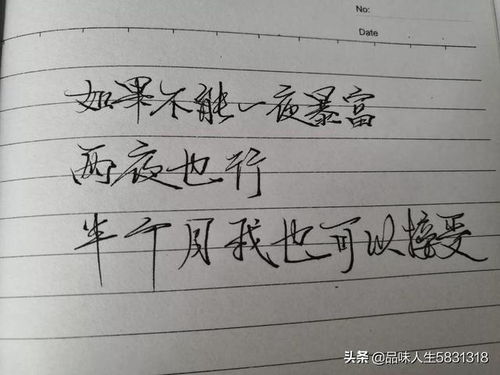 No:
Date
如果不能一夜暴富
两夜也行
半个月我也可以接受
头条 @品味人生5831318